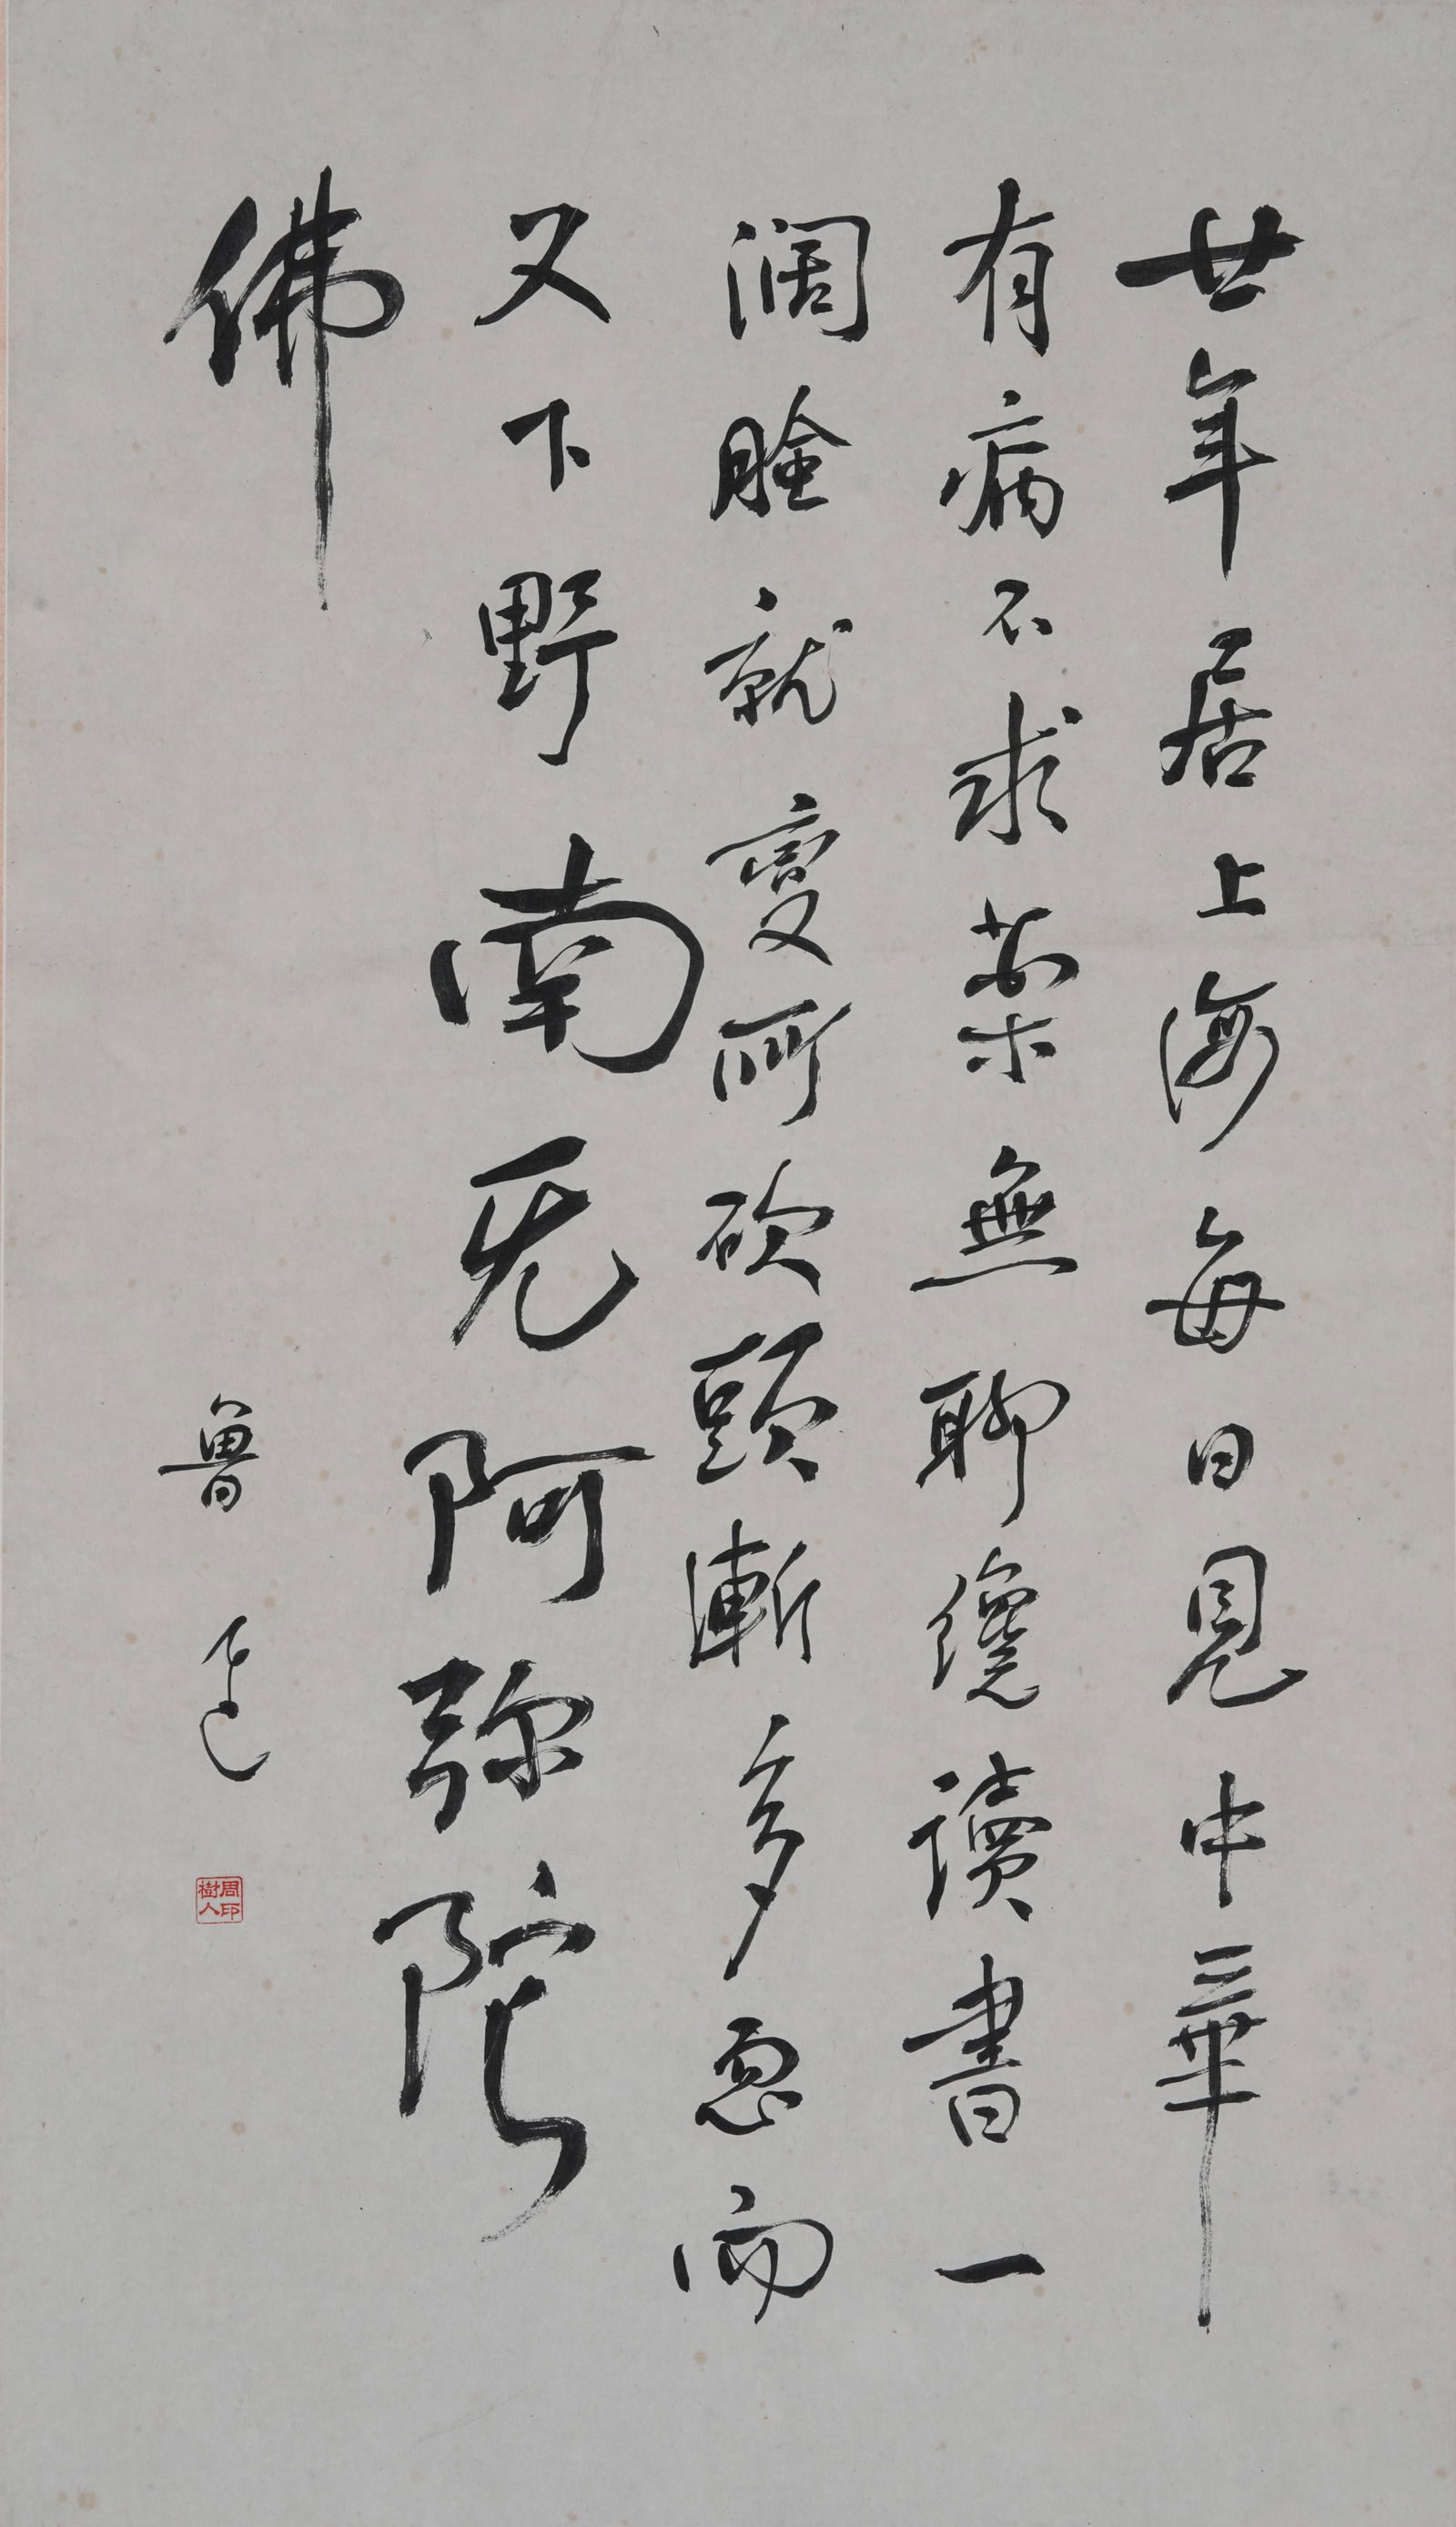 廿年居上海每日見中華
有病不求藥無聊纔讀書一
闊臉就變所砍頭漸多忽而
又下野南无阿弥陀
佛
魯迅
周樹人印